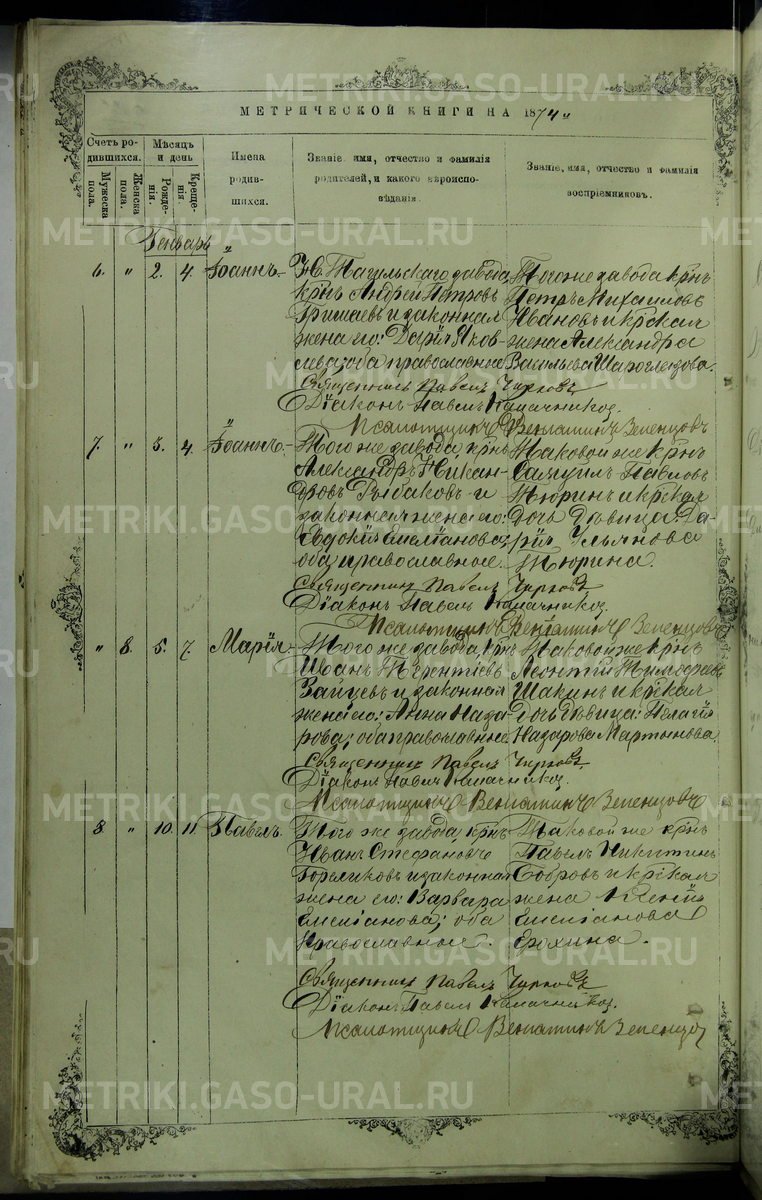 METRIKI.GASO-URAL.RU
МЕТРИЧЕСКОЙ КНИГИ НА 1874
Счетъ родившихся.
Мужеска пола.
Женска пола.
Мѣсяцъ и день
Рожденія.
Крещенія.
Имена родившихся.
Званіе, имя, отчество и фамилія родителей, и какого вѣроисповѣданія.
Званіе, имя, отчество и фамилія воспріемниковъ.
Генварь
6. " 2. 4. Іоаннъ.
Н. Тагильскаго завода
крнъ Андрей Петровъ
Гришаевъ и законная
жена его: Дарія Яков-
лева; оба православные
Того же завода крнъ
Петръ Михаиловъ
Ивановъ и крская
жена Александра
Васильева Шароглазова.
Священникъ Павелъ
Діаконъ Павелъ Калачниковъ.
Псаломщикъ Веніаминъ Зеленцовъ
7. " 3. 4. Іоаннъ.
Того же завода, крнъ
Александръ Никан-
дровъ Рыбаковъ и
законная жена его:
Евдокія Емеліанова;
оба православное.
Таковой же крнъ
Самуилъ Павловъ
Тюринъ и крская
дочь дѣвица Да-
рія Ульянова
Тюрина.
Священникъ Павелъ
Діаконъ Павелъ Калачниковъ.
Псаломщикъ Веніаминъ Зеленцовъ
" 8. 5. 7. Марія.
Того же завода, крнъ
Іоанъ Терентіевъ
Зайцевъ и законная
жена его: Анна Наза-
рова; оба православные
Таковой же крнъ
Леонтій Тимофеевъ
Шакинъ и крская
дочь дѣвица: Пелагія
Назарова Мартынова.
Священникъ Павелъ
Діаконъ Павелъ Калачниковъ.
Псаломщикъ Веніаминъ Зеленцовъ
8. " 10. 11. Павелъ.
Того же завода, крнъ
Иванъ Стефановъ
Гореликовъ и законная
жена его: Варвара
Емеліанова; оба
православное.
Таковой же крнъ
Павелъ Никитинъ
Бобровъ и крская
жена Ксенія
Емеліанова
Ерохина.
Священникъ Павелъ
Діаконъ Павелъ Калачниковъ.
Псаломщикъ Веніаминъ Зеленцовъ